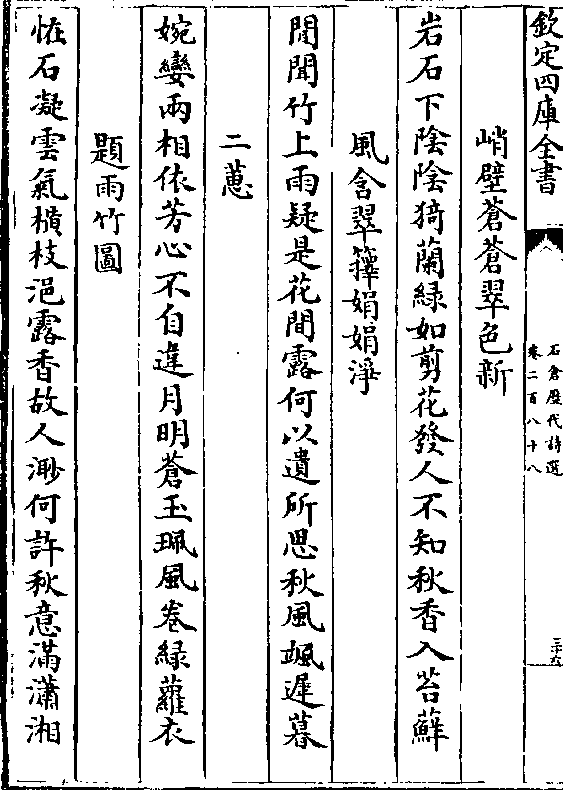 欽定四庫全書
石倉歷代詩選
卷二百八十八
三十六
峭壁蒼蒼翠色新
岩石下陰陰猗蘭綠如剪花發人不知秋香入苔蘚
風含翠籜娟娟淨
閒聞竹上雨疑是花間露何以遺所思秋風颯遲暮
二蕙
婉孌兩相依芳心不自違月明蒼玉珮風卷綠蘿衣
題雨竹圖
怪石凝雲氣橫枝浥露香故人渺何許秋意滿瀟湘